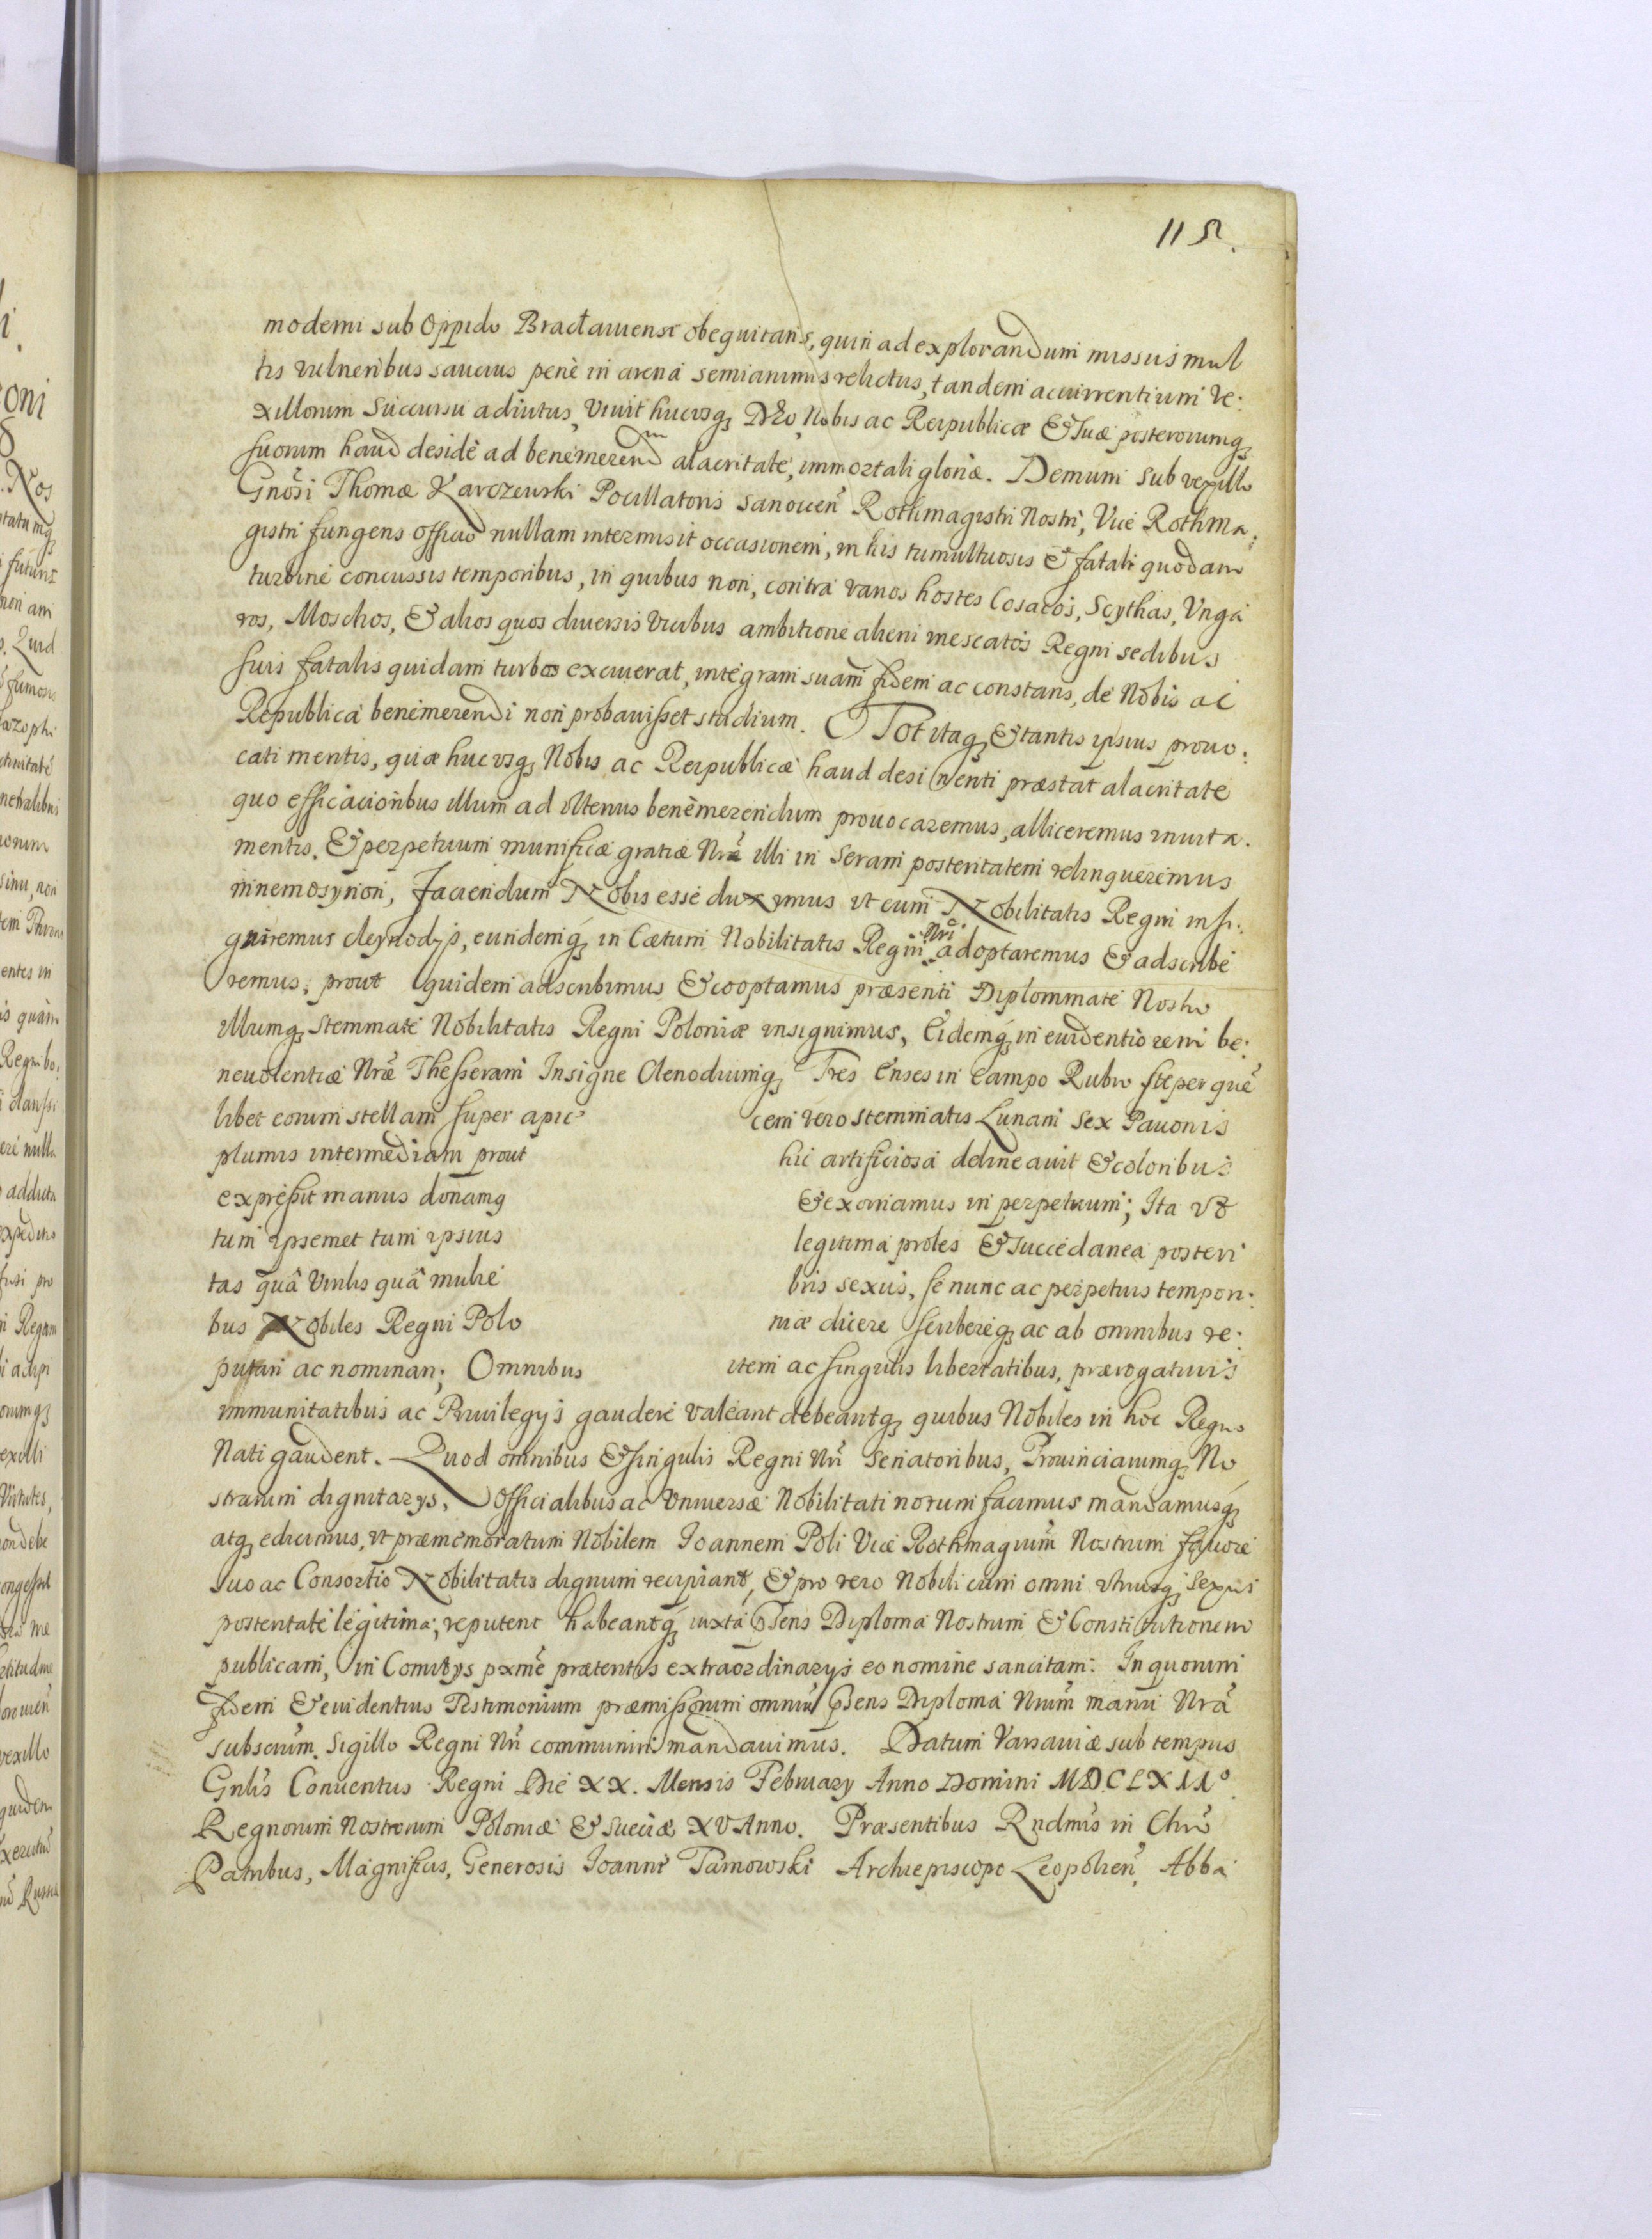 115.
moderni sub Oppido Bractauiense obequitans, quin ad explorandum missus mul
tis vulneribus saucius penè in arena semianimis relictus, tandem accurrentium ve:
xillorum succursu adiutus, viuit hucusq; Deo, Nobis ac Reipublicæ & suæ posterorumq;
suorum haud deside ad benemerendum alacritate, immortali gloriæ. Demum sub vexillo
Gnosi Thomæ Karczewski Pocillatoris Sanocen Rothmagistri Nostri, Vice Rothma:
gistri fungens officio nullam intermisit occasionem, in his tumultuosis & fatali quodam
turbine concussis temporibus, in quibus non, contra varios hostes Cosacos, Scythas, Unga
ros, Moschos, & alios quos diuersis viribus ambitione alieni inescatos Regni sedibus
suis fatalis quidam turbo exciuerat, integram suam fidem ac constans, de Nobis ac
Republica benemerendi non probauisset studium. Tot itaq; & tantis ipsius prouo:
cati mentis, quæ hucusq; Nobis ac Reipublicæ haud desinenti præstat alacritate
quo efficacioribus illum ad ulterius benemerendum prouocaremus, alliceremus inuita:
mentis, & perpetuum munificæ gratiæ Nræ illi in seram posteritatem relinqueremus
mnemosynon, Faciendum Nobis esse duximus ut eum Nobilitatis Regni insi:
gniremus clejnodijs, eundemq; in Cætum Nobilitatis Regni Nri adoptaremus & adscribe
remus; prout quidem adscribimus & cooptamus præsenti Diplommate Nostro
illumq; stemmate Nobilitatis Regni Poloniæ insignimus, Eidemq; in euidentiorem be:
neuolentiæ Nræ Thesseram Insigne Clenodiumq; Tres Enses in Campo Rubro steper que
libet eorum stellam super apic cem vero stemmatis Lunam sex Pauonis
plumis intermediam prout hic artificiosa delineauit & coloribus
expressit manus donamq & exornamus in perpetuum; Ita ut
tum ipsemet tum ipsius legitima proles & succedanea posteri
tas quâ virilis quâ mulie bris sexus, se nunc ac perpetuis tempori:
bus Nobiles Regni Polo niæ dicere scribereq; ac ab omnibus re:
putari ac nominari; Omnibus item ac singulis libertatibus, prærogatiuis
immunitatibus ac Priuilegijs gaudere valeant debeantq; quibus Nobiles in hoc Regno
Nati gaudent. Quod omnibus & singulis Regni Nri Senatoribus, Prouinciarumq; No
strarum dignitarijs, Officialibus ac Vniuersæ Nobilitati notum facimus mandamusq;
atq; edicimus, ut præmemoratum Nobilem Joannem Poli Vice Rothmagrum Nostrum fauore
suo ac Consortio Nobilitatis dignum recipiant, & pro vero Nobili cum omni utriusq; Sexus
posteritate legitima, reputent habeantq; iuxta præsens Diploma Nostrum & Constitutionem
publicam, in Comitijs pxme prætentis extraordinarijs eo nomine sancitam. In quorum
fidem & euidentius Testimonium præmissorum omniu præsens Diploma Nrum manu Nra
subscrum. Sigillo Regni Nri communiri mandauimus. Datum Varsauiæ sub tempus
Gnlis Conuentus Regni Die XX. Mensis February Anno Domini MDCLXII°
Regnorum Nostrorum Poloniæ & Sueciæ XV Anno. Præsentibus Rndmis in Chro
Patribus, Magnificis, Generosis Joanne Tarnowski Archiepiscopo Leopolien, Abba